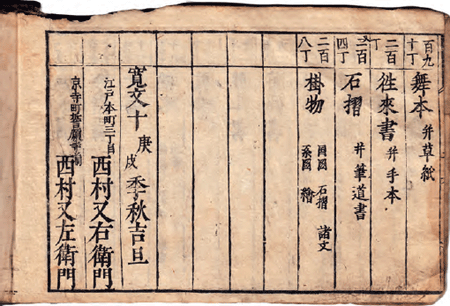 百九十丁 舞本 并草紙
二百丁 徃來書 并手本
二百四丁 石摺 并筆道書
二百八丁 掛物 図 石摺 諸文 系図 繪
寛文十庚戌季秋吉旦
江戸本町三丁目 西村又右衛門
京寺町誓願寺前 西村又左衛門